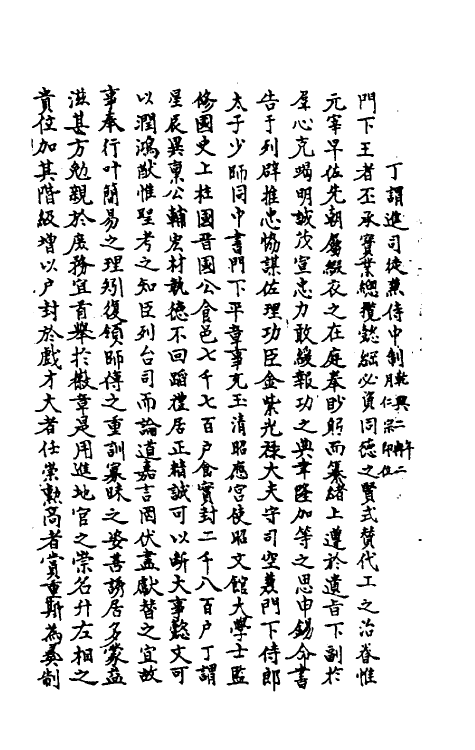 丁謂進司徒兼侍中制乾興二年二月仁宗即位
門下王者丕承寶業總攬懿綱必資同德之賢式贊代工之治眷惟
元宰早佐先朝屬綴衣之在庭奉眇躬而纂緒上遵於遺旨下副於
羣心克竭明誠茂宣忠力敢緩報功之典聿隆加等之恩申錫命書
告于列辟推忠協謀佐理功臣金紫光祿大夫守司空兼門下侍郎
太子少師同中書門下平章事充玉清昭應宮使昭文館大學士監
修國史上柱國晉國公食邑七千七百户食實封二千八百户丁謂
星辰異稟公輔宏材執德不回蹈禮居正精誠可以斷大事懿文可
以潤鴻猷惟聖考之知臣列台司而論道嘉言罔伏盡獻替之宜故
事奉行叶簡易之理矧復領師傅之重訓冡昧之姿善誘居多蒙益
滋甚方勉親於庶務宜首舉於徽章是用進地官之崇名升左相之
貴位加其階級增以户封於戲才大者任崇勲高者賞重斯為彝制